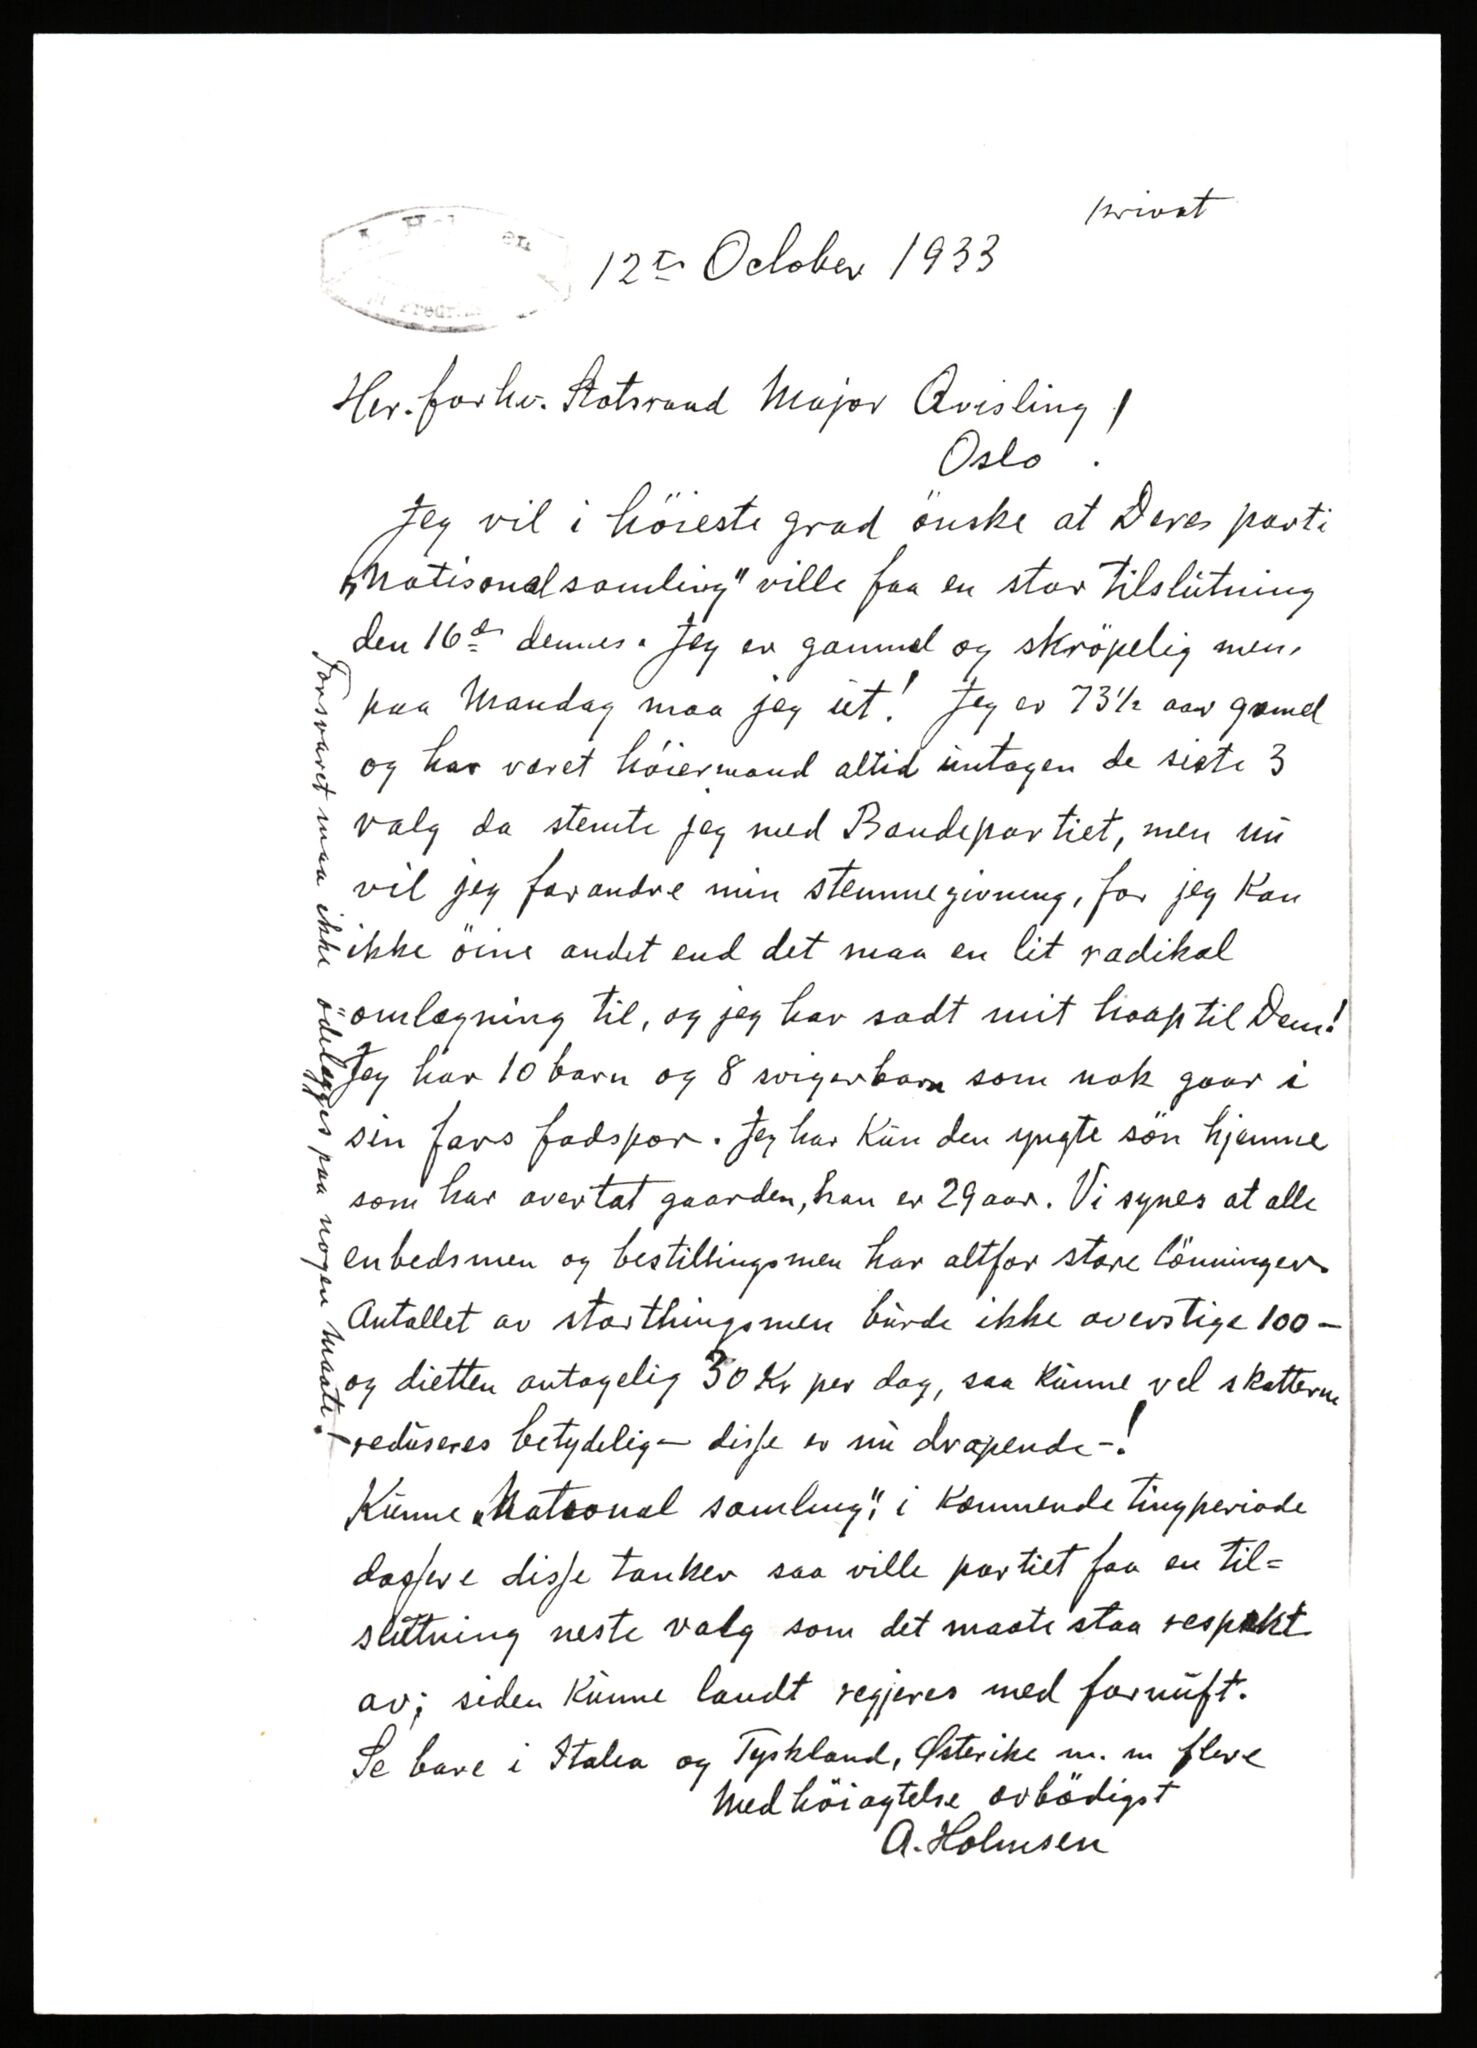 privat
12te October 1933
Her. forhv. Statsraad Major Qvisling!
Oslo.
Jeg vil i höieste grad önske at Deres parti
„Natisonalsamling" ville faa en stor tilslutning
den 16de dennes. Jeg er gammel og skröpelig men,
paa Mandag maa jeg ut! Jeg er 73½ aar gamel
og har været höiermand altid untagen de siste 3
valg da stemte jeg med Bondepartiet, men nu
vil jeg forandre min stemmegivning, for jeg kan
ikke öine andet end det maa en lit radikal
omlægning til, og jeg har sadt mit haap til Dem!
Jeg har 10 barn og 8 svigerbarn som nok gaar i
sin fars fodspor. Jeg har kun den yngte sön hjemme
som har overtat gaarden, han er 29 aar. Vi synes at alle
enbedsmen og bestillingsmen har altfor store lönninger.
Antallet av storthingsmen burde ikke overstige 100 –
og dietten antagelig 30 Kr per dag, saa kunne vel skatterne
reduseres betydelig – disse er nu dræpende –!
Kunne „National samling", i kommende tingperiode
dossere disse tanker saa ville partiet faa en til=
slutning neste valg som det maate staa respekt
av; siden kunne landt regjeres med fornuft.
Se bare i Italia og Tyskland, Østerike m. m flere
Med höiagtelse ærbödigst
A. Holmsen
Forsvaret maa ikke ödelægges paa nogen maate!